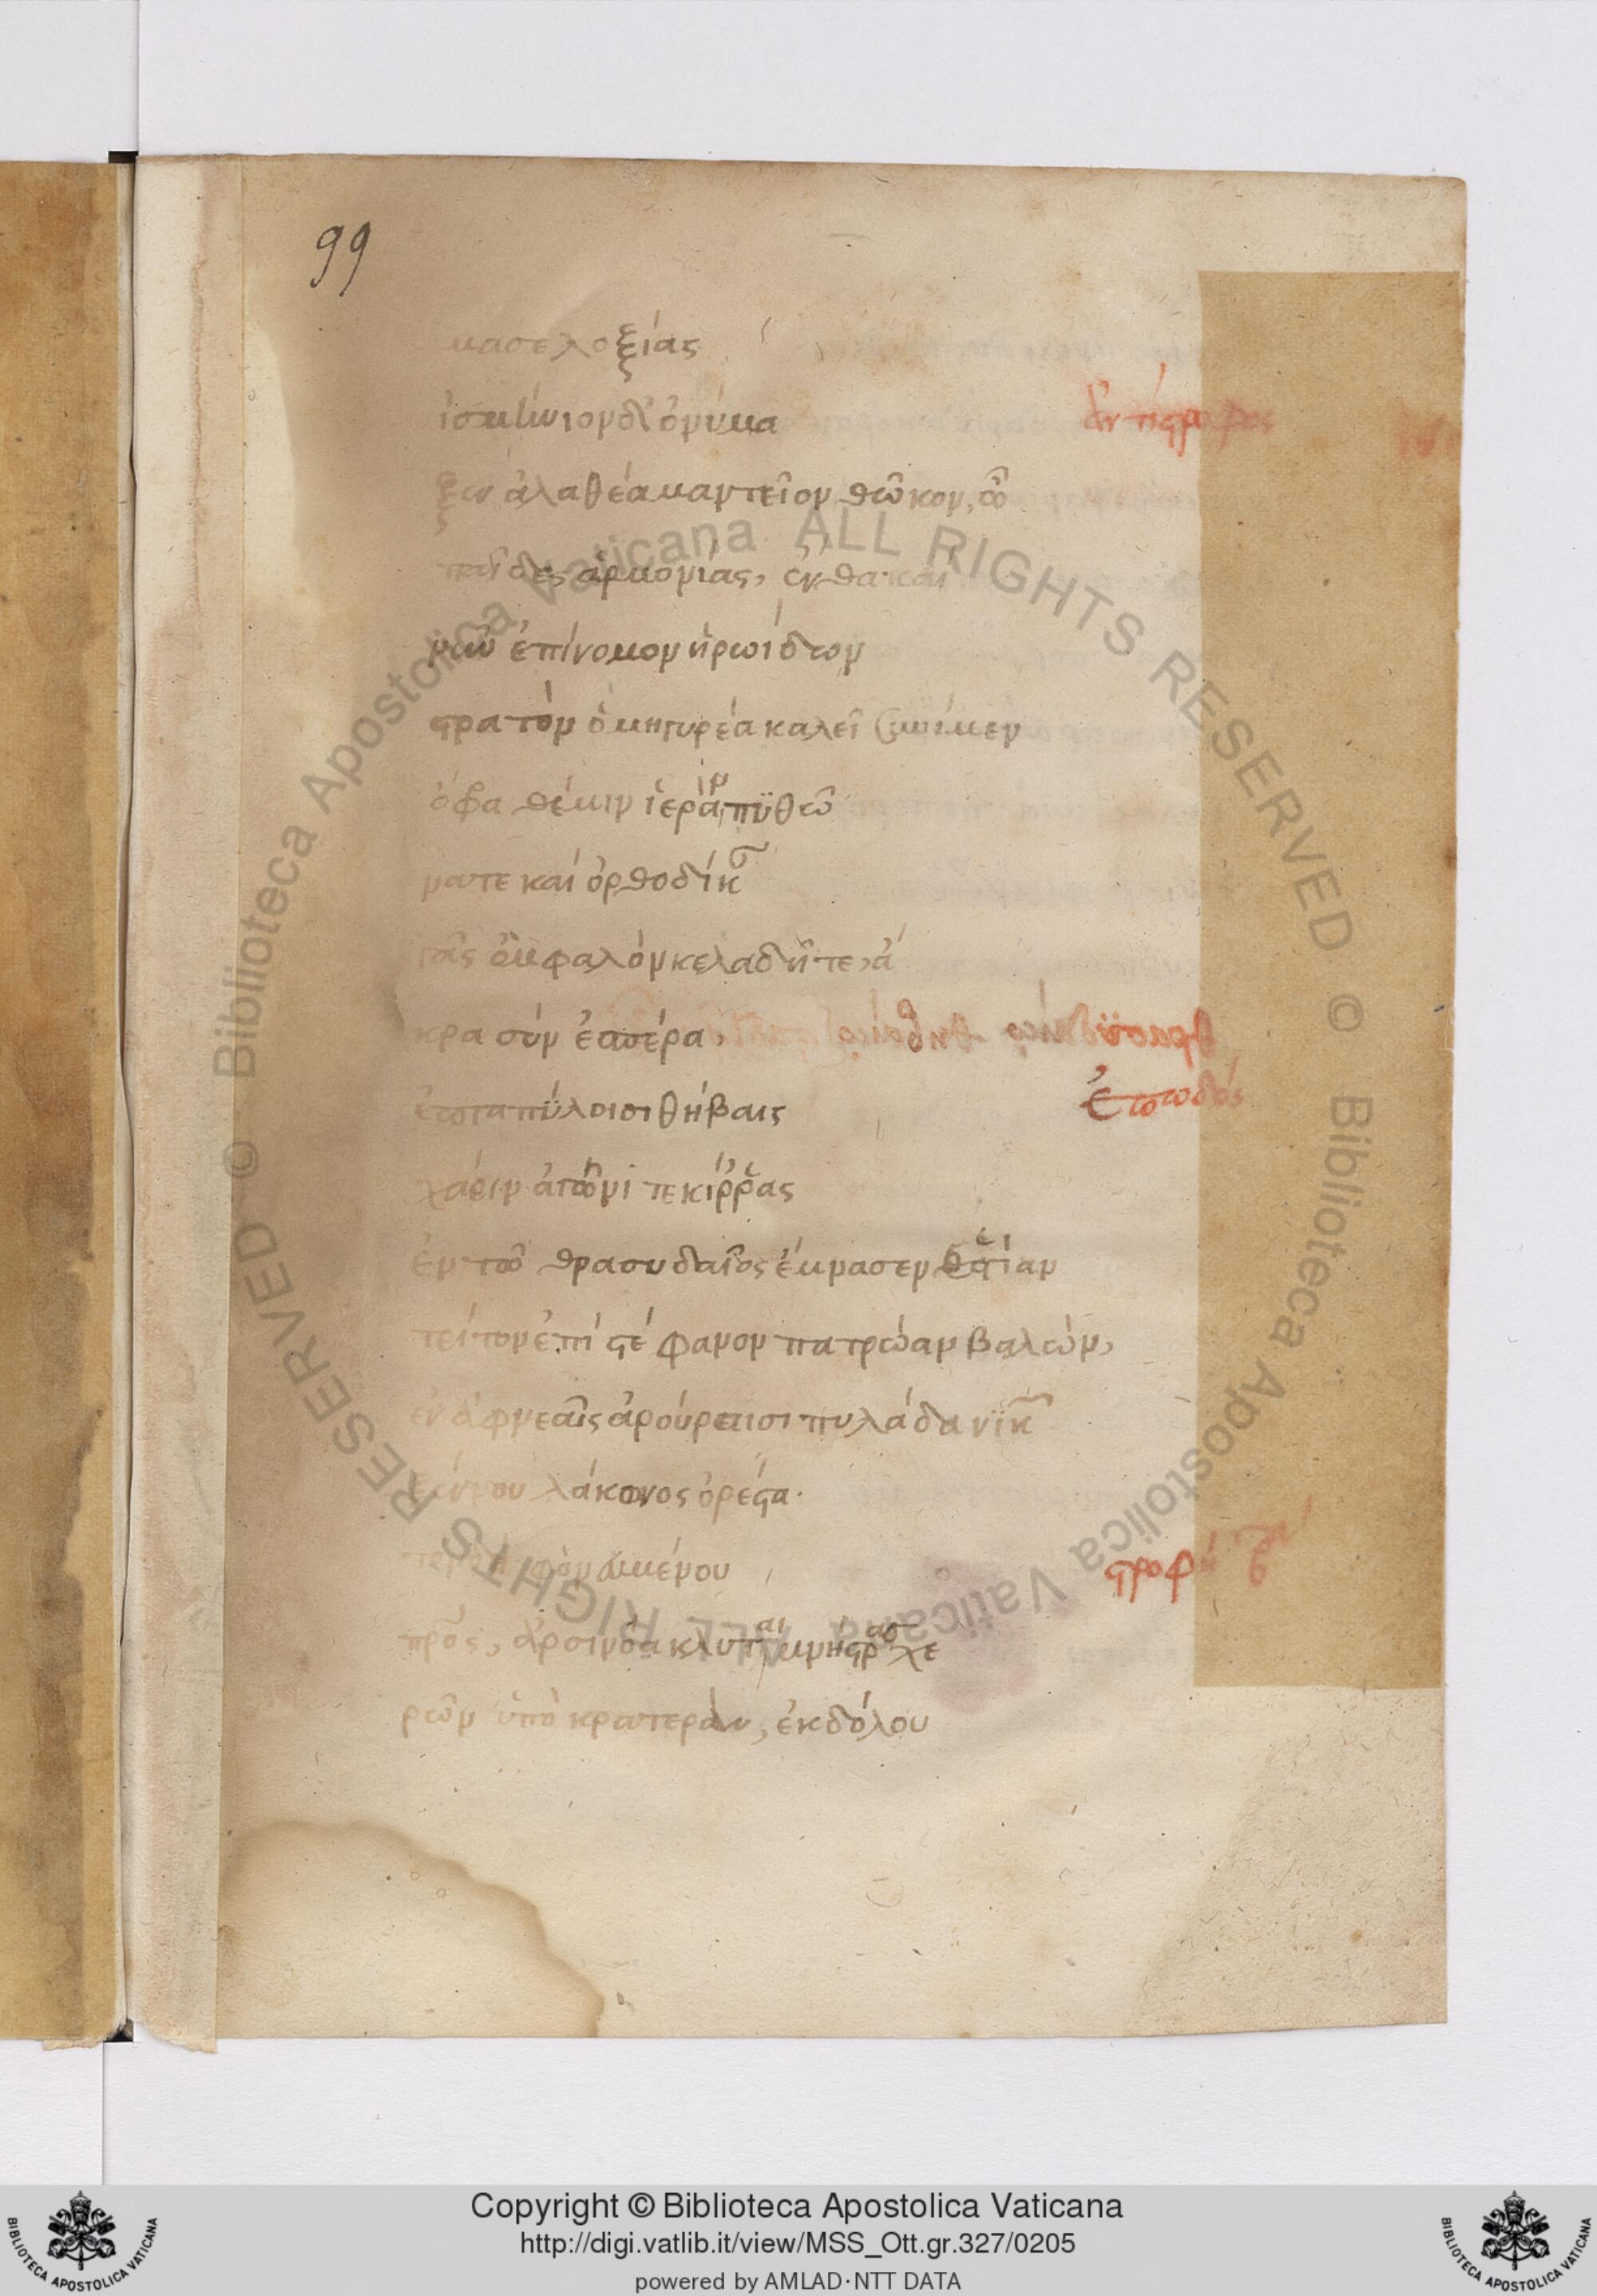 99
μασε λοξίας
ἰσμήνιον δ' ὀνύμα
ἀντίστροφος
ξεν ἀλαθέα μαντεῖον θῶκον, ὦ
παῖδες ἁρμονίας, ἔνθα καί
νῦν ἐπίνομον ἡρωίδων
στρατὸν ὁμηγυρέα καλεῖ συνίμεν
ὄφρα θέμιν ἱερὰν πϋθῶ
νατε καὶ ὀρθοδίκαν
γᾶς ὀμφαλὸν κελαδῆτε, ἄ
κρα σὺν ἑσπέρα,
ἑπταπύλοισι θήβαις
ἐπωδός
χάριν ἀγῶνί τε κίρρας
ἐν τῶ θρασυδαῖος ἔμνασεν ἑστίαν
τρίτον ἐπὶ στέφανον πατρώαν βαλών,
ἐν ἀφνεαῖς ἀρούραισι πυλάδα νικῶν
ξένου λάκωνος ὀρέστα·
φον αμένου
στροφή
πρός, ἀρσινόα κλυταιμνήστρας χε
ρῶν ὑπὸ κρατεράν, ἐκ δόλου
Copyright © Biblioteca Apostolica Vaticana
http://digi.vatlib.it/view/MSS_Ott.gr.327/0205
powered by AMLAD·NTT DATA
BIBLIOTECA APOSTOLICA VATICANA
BIBLIOTECA APOSTOLICA VATICANA
© Biblioteca Apostolica Vaticana ALL RIGHTS RESERVED
© Biblioteca Apostolica Vaticana ALL RIGHTS RESERVED